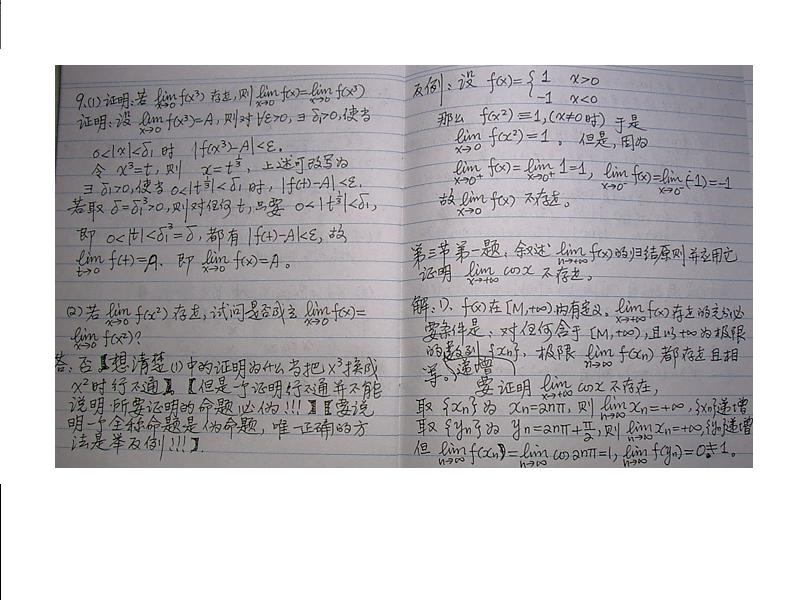 9.(1) 证明:若 lim x→0 f(x³) 存在,则 lim x→0 f(x) = lim x→0 f(x³)
证明:设 lim x→0 f(x³)=A, 则对∀ε>0, ∃ δ₁>0,使当
0<|x|<δ₁ 时 |f(x³)-A|<ε.
令 x³=t, 则 x=t^{1/3}, 上述可改写为
∃ δ₁>0, 使当 0<|t^{1/3}|<δ₁ 时, |f(t)-A|<ε.
若取 δ=δ₁³>0, 则对任何 t, 只要 0<|t^{1/3}|<δ₁,
即 0<|t|<δ₁³=δ, 都有 |f(t)-A|<ε, 故
lim t→0 f(t)=A, 即 lim x→0 f(x)=A。
(2) 若 lim x→0 f(x²) 存在, 试问是否成立 lim x→0 f(x)=
lim x→0 f(x²)?
答:否【想清楚(1)中的证明为什么当把x³换成
x²时行不通】。【但是一个证明行不通并不能
说明所要证明的命题必伪!!!】【要说
明一个全称命题是伪命题, 唯一正确的方
法是举反例!!!】.
反例: 设 f(x)={ 1 x>0
-1 x<0
那么 f(x²)≡1,(x≠0时) 于是
lim x→0 f(x²)=1 。但是,因为
lim x→0⁺ f(x)=lim x→0⁺ 1=1, lim x→0⁻ f(x)=lim x→0⁻ (-1)=-1
故 lim x→0 f(x) 不存在。
第三节第一题: 叙述 lim n→+∞ f(x)的归结原则并应用它
证明 lim x→+∞ cosx 不存在。
解: 1). f(x)在[M,+∞)内有定义。lim x→+∞ f(x)存在的充分必
要条件是: 对任何含于[M,+∞),且以+∞为极限
的递增数列{xn}, 极限 lim n→∞ f(xn) 都存在且相
等。
要证明 lim x→+∞ cosx 不存在,
取{xn}为 xn=2nπ, 则 lim n→∞ xn=+∞, {xn}递增
取{yn}为 yn=2nπ+π/2, 则 lim n→∞ xn=+∞, {yn}递增
但 lim n→∞ f(xn)=lim n→∞ cos2nπ=1, lim n→∞ f(yn)=0≠1。